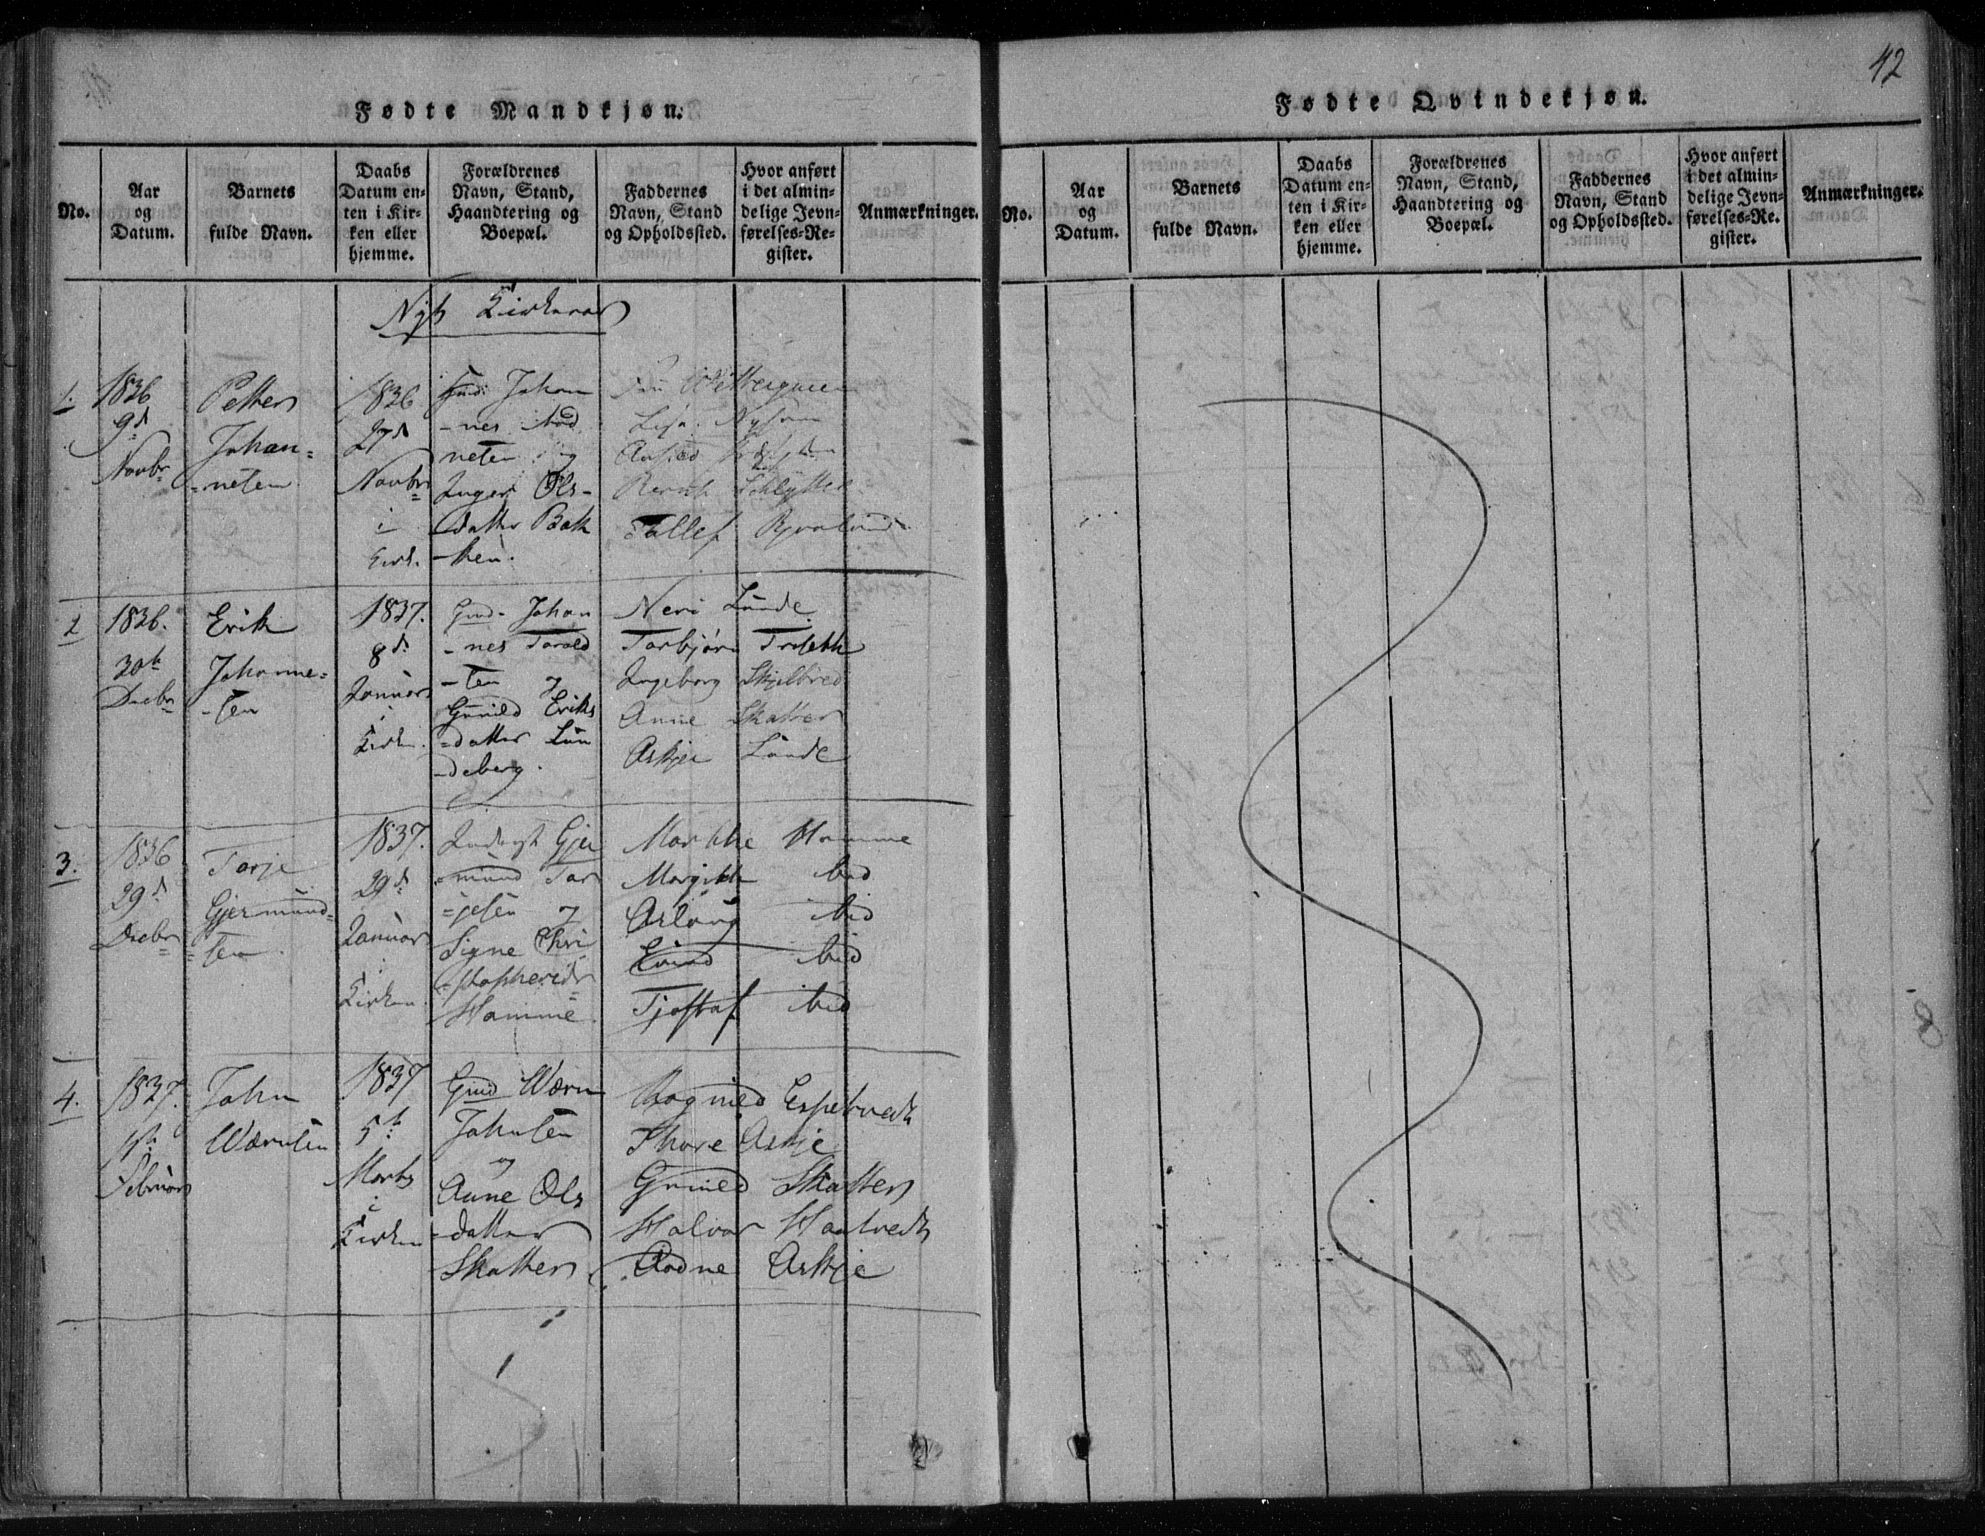 42
Fødte Mandkjøn.
No.
Aar og Datum.
Barnets fulde Navn.
Daabs Datum enten i Kirken eller hjemme.
Forældrenes Navn, Stand, Haandtering og Boepæl.
Faddernes Navn, Stand og Opholdssted.
Hvor anført i det almindelige Jevnførelses-Register.
Anmærkninger.
Nyt Kirkeaar
1.
1836
9d
Novbr
Petter
Johan=
=neten
1836
27d
Novbr
i
Kirk.
Gmd: Johan
-nes
neten og
Inger Ols-
datter Bak
-ken.
Lisa
Schlytter
Tallef
2
1836.
30te
Decbr
Erik
Johanne=
-sen
1837.
8d
Januar
i
Kirken.
Gmd. Johan
-nes Torald
-sen og
Gunild Eriks
=datter Lun
-deberg.
Neri Lunde
Torbjørn
Ingeborg Skjelbred
Anne Skatter
Askjer Lunde
3.
1836
29d
Decbr
Torje
Gjermund=
=sen
1837.
29d
Januar
i
Kirken.
Inderst Gjer
=mund Tor
=jesen og
Signe Chri
=stophersdr
Homme
Markke Homme
Margith ibid
Aslaug ibid
Eivind ibid
Tjostaf ibid
4.
1837.
1ste
Februar
John
Wærnsen
1837
5te
Marts
i
Kirken
Gmd Wærn
Johnsen
og
Anne Ols
=datter
Skatter
Ragnild Espetvedt
Thore Askje
Gunild Skatter
Halvor Haatvedt
Aadne Askje
Fødte Qvindekjøn.
No.
Aar og Datum.
Barnets fulde Navn.
Daabs Datum enten i Kirken eller hjemme.
Forældrenes Navn, Stand, Haandtering og Boepæl.
Faddernes Navn, Stand og Opholdssted.
Hvor anført i det almindelige Jevnførelses-Register.
Anmærkninger.